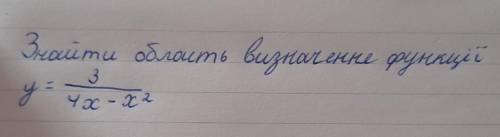 Знайти область визначенне функції
y = 3/(4x - x²)